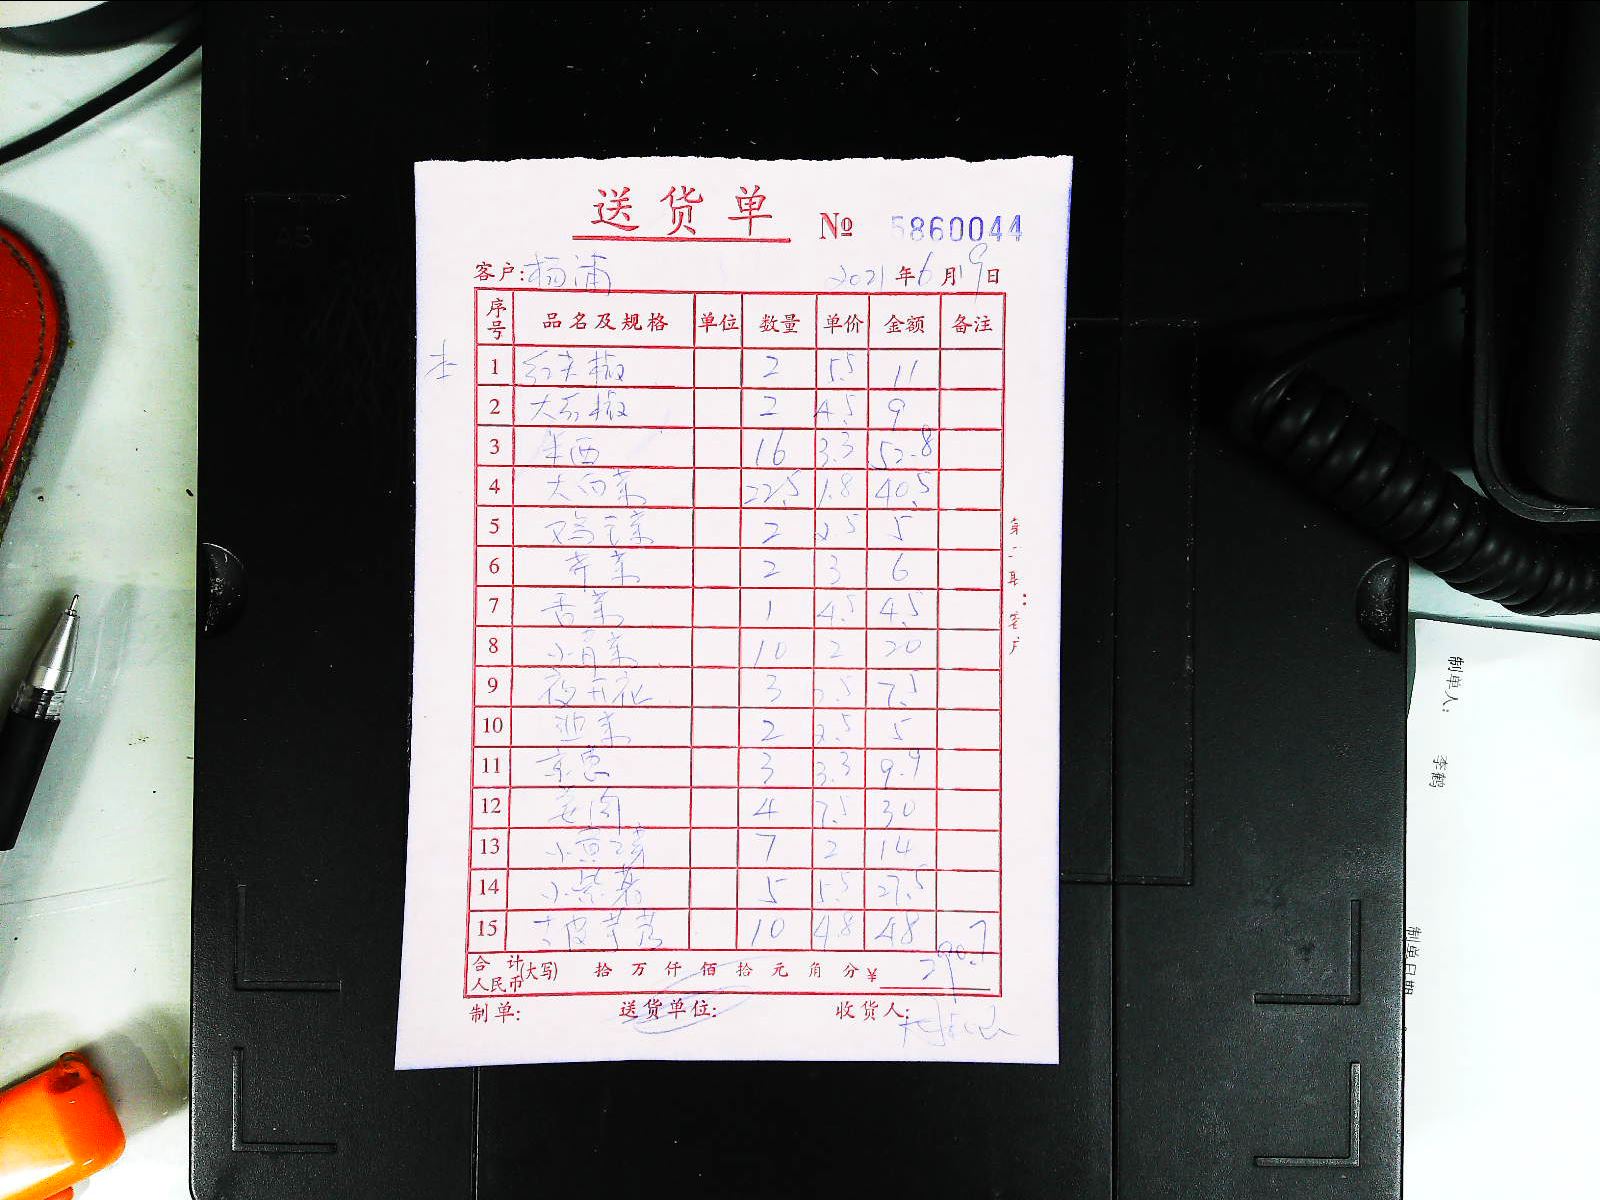 送货单 № 5860044
客户:杨浦 2021年6月19日
序号 品名及规格 单位 数量 单价 金额 备注
1 红尖椒 2 5.5 11
2 大青椒 2 4.5 9
3 16 3.3 52.8
4 大白菜 22.5 1.8 40.5
5 鸡毛菜 2 2.5 5
6 芹菜 2 3 6
7 1 4.5 4.5
8 小青菜 10 2 20
9 夜开花 3 2.5 7.5
10 韭菜 2 2.5 5
11 京葱 3 3.3 9.9
12 姜肉 4 7.5 30
13 7 2 14
14 小紫薯 5 5.5 27.5
15 去皮芋艿 10 4.8 48
合计人民币(大写) 拾 万 仟 佰 拾 元 角 分 ¥ 290.7
制单: 送货单位: 收货人:
第二联:客户
制单人: 李鹤
制单日期
A5